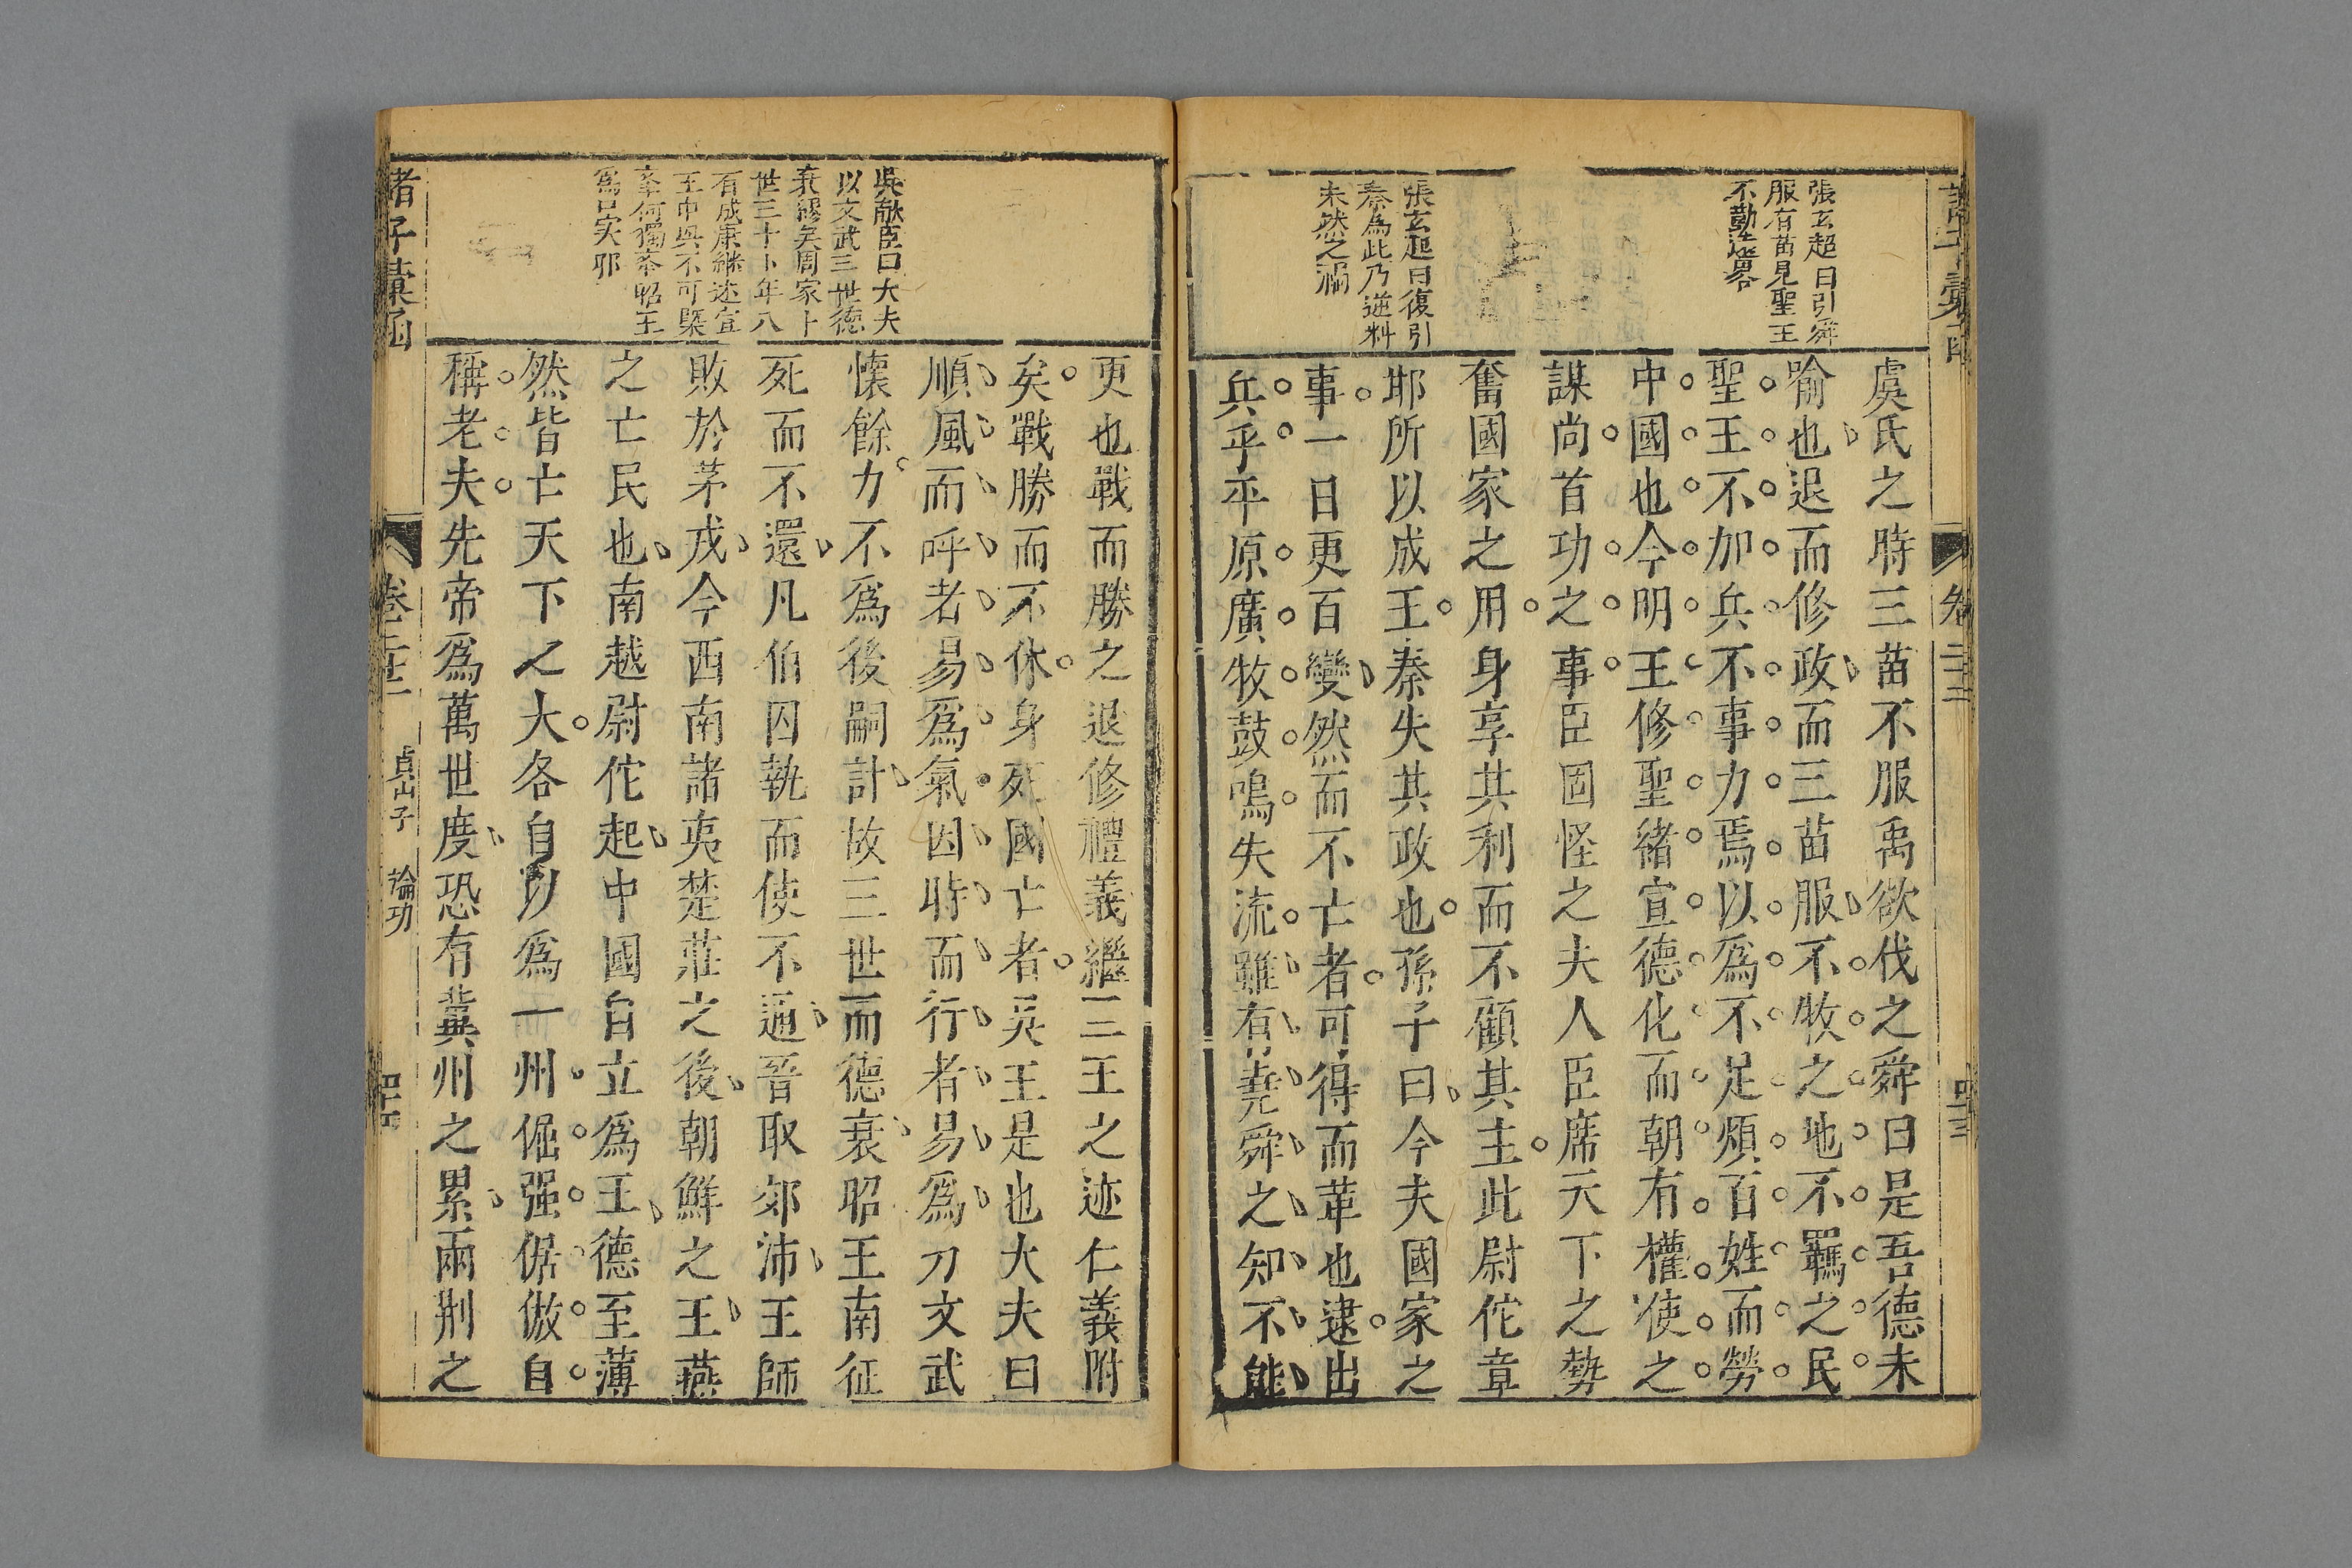 諸子彙函
卷二十二
四十三
張玄超曰引舜
服有苗見聖王
不勤遠畧
張玄超曰復引
秦為此乃逆料
未然之禍
虞氏之時三苗不服禹欲伐之舜曰是吾德未
喻也退而修政而三苗服不牧之地不羈之民
聖王不加兵不事力焉以爲不足煩百姓而勞
中國也今明王修聖緒宣德化而朝有權使之
謀尚首功之事臣固怪之夫人臣席天下之勢
奮國家之用身享其利而不顧其主此尉佗章
邯所以成王秦失其政也孫子曰今夫國家之
事一日更百變然而不亡者可得而革也逮出
兵乎平原廣牧鼓鳴矢流雖有堯舜之知不能
吳獻臣曰大夫
以文武三世德
衰繆矣周家十
世三十卜年八
有成康継述宣
王中興不可槩
挙何獨挙昭王
爲口实耶
更也戰而勝之退修禮義繼三王之迹仁義附
矣戰勝而不休身死國亡者吳王是也大夫曰
順風而呼者易爲氣因時而行者易爲力文武
懷餘力不爲後嗣計故三世而德衰昭王南征
死而不還凡伯囚執而使不通晉取郊沛王師
敗於茅戎今西南諸夷楚莊之後朝鮮之王燕
之亡民也南越尉佗起中國自立爲王德至薄
然皆亡天下之大各自以爲一州倔强倨傲自
稱老夫先帝爲萬世度恐有冀州之累南荆之
諸子彙函
卷二十二
貞山子
論功
四十四